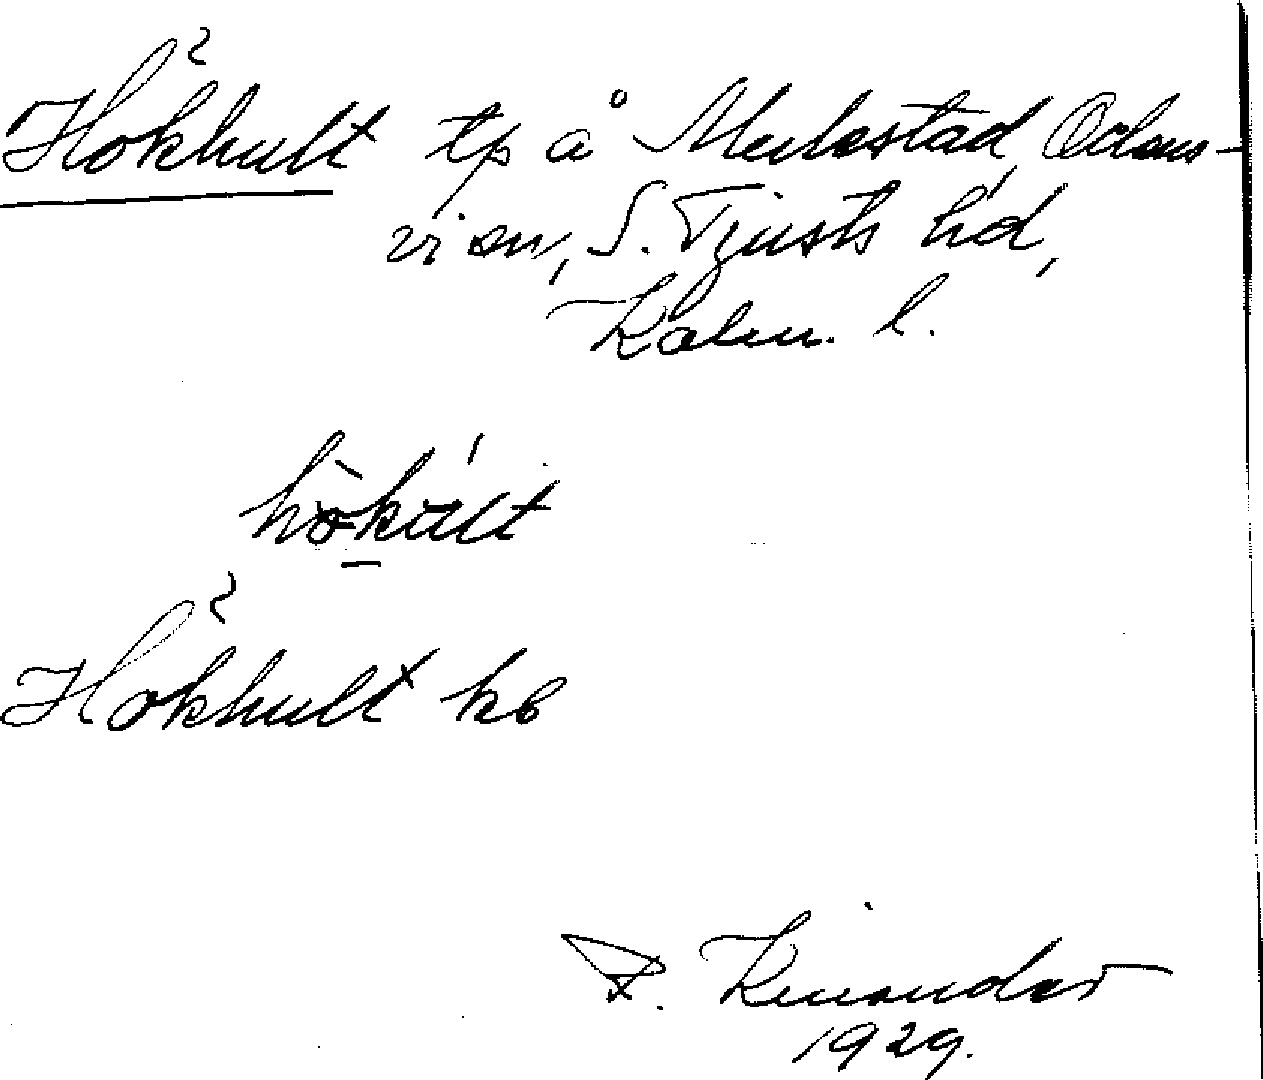 Hökhult tp å Mulestad, Odens-
vi sn, S. Tjusts hd,
Kalm. l.
hö̀kúlt
Hökhult kb
F. Kinander
1929.